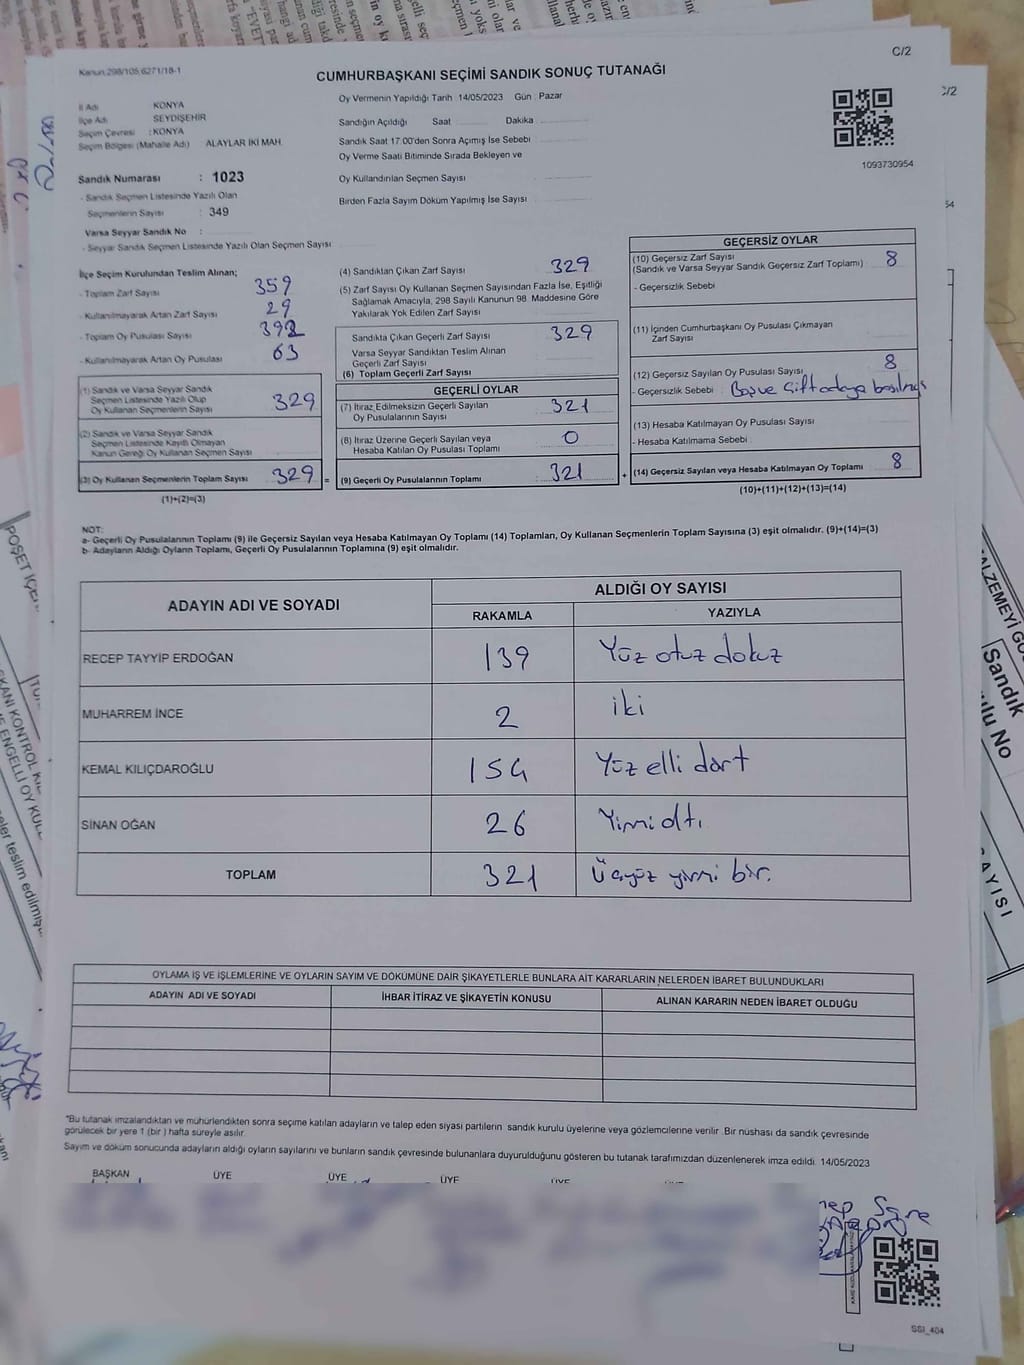 C/2
Kanun:298/105,6271/18-1
CUMHURBAŞKANI SEÇİMİ SANDIK SONUÇ TUTANAĞI
İl Adı KONYA
İlçe Adı SEYDİŞEHİR
Seçim Çevresi : KONYA
Seçim Bölgesi (Mahalle Adı) ALAYLAR İKİ MAH.
Sandık Numarası : 1023
- Sandık Seçmen Listesinde Yazılı Olan
Seçmenlerin Sayısı : 349
Varsa Seyyar Sandık No :
- Seyyar Sandık Seçmen Listesinde Yazılı Olan Seçmen Sayısı
Oy Vermenin Yapıldığı Tarih 14/05/2023 Gün : Pazar
Sandığın Açıldığı Saat Dakika
Sandık Saat 17.00'den Sonra Açımış İse Sebebi
Oy Verme Saati Bitiminde Sırada Bekleyen ve
Oy Kullandırılan Seçmen Sayısı
Birden Fazla Sayım Döküm Yapılmış İse Sayısı
1093730954
İlçe Seçim Kurulundan Teslim Alınan;
- Toplam Zarf Sayısı 359
- Kullanılmayarak Artan Zarf Sayısı 29
- Toplam Oy Pusulası Sayısı
- Kullanılmayarak Artan Oy Pusulası 63
(1) Sandık ve Varsa Seyyar Sandık
Seçmen Listesinde Yazılı Olup
Oy Kullanan Seçmenlerin Sayısı 329
(2) Sandık ve Varsa Seyyar Sandık
Seçmen Listesinde Kayıtlı Olmayan
Kanun Gereği Oy Kullanan Seçmen Sayısı
(3) Oy Kullanan Seçmenlerin Toplam Sayısı 329 =
(1)+(2)=(3)
(4) Sandıktan Çıkan Zarf Sayısı 329
(5) Zarf Sayısı Oy Kullanan Seçmen Sayısından Fazla İse, Eşitliği
Sağlamak Amacıyla, 298 Sayılı Kanunun 98. Maddesine Göre
Yakılarak Yok Edilen Zarf Sayısı
Sandıkta Çıkan Geçerli Zarf Sayısı 329
Varsa Seyyar Sandıktan Teslim Alınan
Geçerli Zarf Sayısı
(6) Toplam Geçerli Zarf Sayısı
GEÇERLİ OYLAR
(7) İtiraz Edilmeksizin Geçerli Sayılan
Oy Pusulalarının Sayısı 321
(8) İtiraz Üzerine Geçerli Sayılan veya
Hesaba Katılan Oy Pusulası Toplamı 0
(9) Geçerli Oy Pusulalarının Toplamı : 321 +
GEÇERSİZ OYLAR
(10) Geçersiz Zarf Sayısı
(Sandık ve Varsa Seyyar Sandık Geçersiz Zarf Toplamı) 8
- Geçersizlik Sebebi
(11) İçinden Cumhurbaşkanı Oy Pusulası Çıkmayan
Zarf Sayısı
(12) Geçersiz Sayılan Oy Pusulası Sayısı 8
- Geçersizlik Sebebi : Boş ve çift adaya basılmış
(13) Hesaba Katılmayan Oy Pusulası Sayısı
- Hesaba Katılmama Sebebi
(14) Geçersiz Sayılan veya Hesaba Katılmayan Oy Toplamı 8
(10)+(11)+(12)+(13)=(14)
NOT:
a- Geçerli Oy Pusulalarının Toplamı (9) ile Geçersiz Sayılan veya Hesaba Katılmayan Oy Toplamı (14) Toplamları, Oy Kullanan Seçmenlerin Toplam Sayısına (3) eşit olmalıdır. (9)+(14)=(3)
b- Adayların Aldığı Oyların Toplamı, Geçerli Oy Pusulalarının Toplamına (9) eşit olmalıdır.
ADAYIN ADI VE SOYADI
ALDIĞI OY SAYISI
RAKAMLA YAZIYLA
RECEP TAYYİP ERDOĞAN 139 Yüz otuz dokuz
MUHARREM İNCE 2 iki
KEMAL KILIÇDAROĞLU 154 Yüz elli dört
SİNAN OĞAN 26 Yirmi altı
TOPLAM 321 Üçyüz yirmi bir.
OYLAMA İŞ VE İŞLEMLERİNE VE OYLARIN SAYIM VE DÖKÜMÜNE DAİR ŞİKAYETLERLE BUNLARA AİT KARARLARIN NELERDEN İBARET BULUNDUKLARI
ADAYIN ADI VE SOYADI İHBAR İTİRAZ VE ŞİKAYETİN KONUSU ALINAN KARARIN NEDEN İBARET OLDUĞU
*Bu tutanak imzalandıktan ve mühürlendikten sonra seçime katılan adayların ve talep eden siyasi partilerin sandık kurulu üyelerine veya gözlemcilerine verilir .Bir nüshası da sandık çevresinde
görülecek bir yere 1 (bir ) hafta süreyle asılır.
Sayım ve döküm sonucunda adayların aldığı oyların sayılarını ve bunların sandık çevresinde bulunanlara duyurulduğunu gösteren bu tutanak tarafımızdan düzenlenerek imza edildi. 14/05/2023
BAŞKAN ÜYE ÜYE ÜYE ÜYE
SSI_404
POŞET İÇER
Sandık
ulu No
AYISI